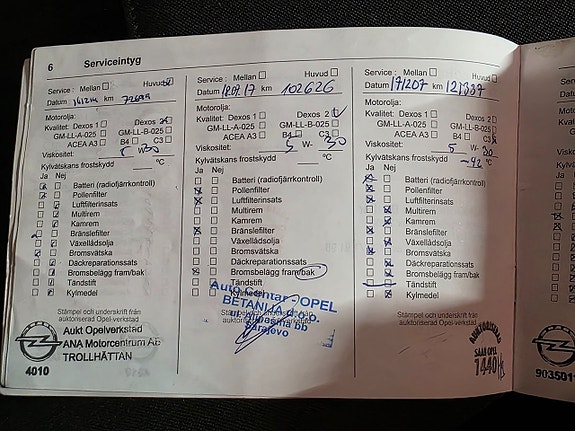 6 Serviceintyg
Service : Mellan Huvud
Datum km
Motorolja:
Kvalitet: Dexos 1 Dexos 2
GM-LL-A-025 GM-LL-B-025
ACEA A3 B4 C3
Viskositet: 5 W 30
Kylvätskans frostskydd °C
Ja Nej
Batteri (radiofjärrkontroll)
Pollenfilter
Luftfilterinsats
Multirem
Kamrem
Bränslefilter
Växellådsolja
Bromsvätska
Däckreparationssats
Bromsbelägg fram/bak
Tändstift
Kylmedel
Stämpel och underskrift från
auktoriserad Opel-verkstad
Aukt Opelverkstad
ANA Motorcentrum AB
TROLLHÄTTAN
4010
Service : Mellan Huvud
Datum km 102626
Motorolja:
Kvalitet: Dexos 1 Dexos 2
GM-LL-A-025 GM-LL-B-025
ACEA A3 B4 C3
Viskositet: 5 W- 30
Kylvätskans frostskydd °C
Ja Nej
Batteri (radiofjärrkontroll)
Pollenfilter
Luftfilterinsats
Multirem
Kamrem
Bränslefilter
Växellådsolja
Bromsvätska
Däckreparationssats
Bromsbelägg fram/bak
Tändstift
Kylmedel
Auto Centar OPEL
BETANIJA d.o.o.
Sarajevo
Service : Mellan Huvud
Datum 171207 km 121337
Motorolja:
Kvalitet: Dexos 1 Dexos 2
GM-LL-A-025 GM-LL-B-025
ACEA A3 B4 C3
Viskositet: 5 W- 30
Kylvätskans frostskydd -42 °C
Ja Nej
Batteri (radiofjärrkontroll)
Pollenfilter
Luftfilterinsats
Multirem
Kamrem
Bränslefilter
Växellådsolja
Bromsvätska
Däckreparationssats
Bromsbelägg fram/bak
Tändstift
Kylmedel
Stämpel och underskrift från
auktoriserad Opel-verkstad
AUKTORISERAD
SAAB OPEL
1440